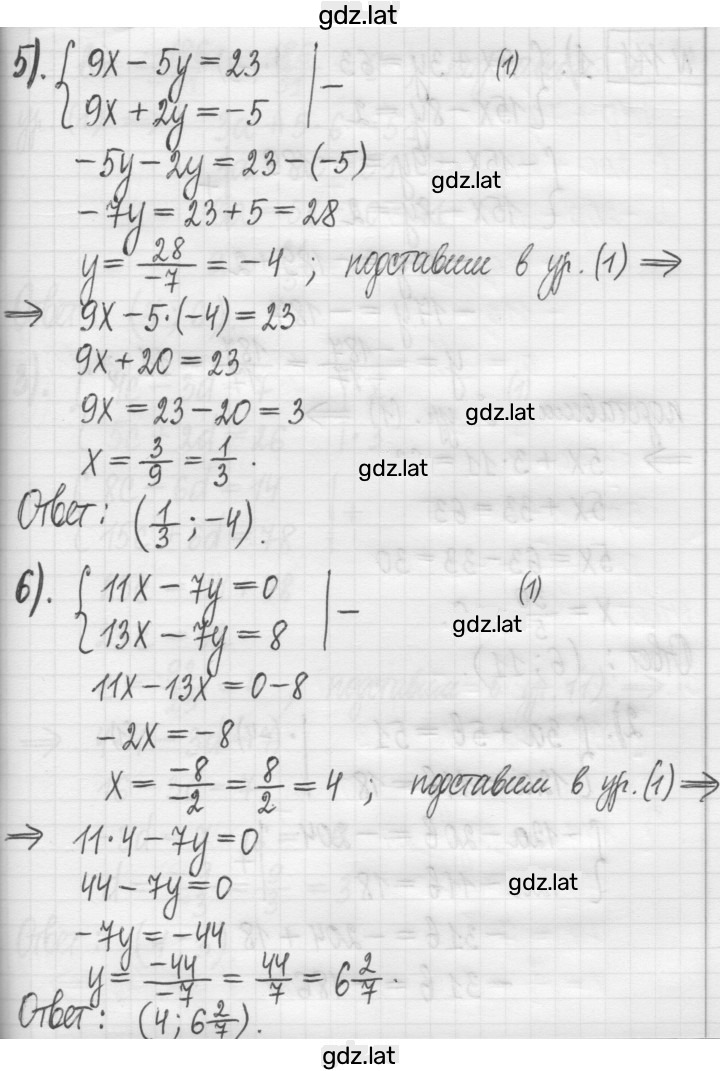 gdz.lat
5). { 9x − 5y = 23 | − (1)
{ 9x + 2y = −5
−5y − 2y = 23 − (−5)
gdz.lat
−7y = 23 + 5 = 28
y = 28/−7 = −4 ; подставим в ур. (1) ⇒
⇒ 9x − 5·(−4) = 23
9x + 20 = 23
9x = 23 − 20 = 3
gdz.lat
x = 3/9 = 1/3 .
gdz.lat
Ответ: (1/3 ; −4).
6). { 11x − 7y = 0 | − (1)
{ 13x − 7y = 8
gdz.lat
11x − 13x = 0 − 8
−2x = −8
x = −8/−2 = 8/2 = 4 ; подставим в ур. (1) ⇒
⇒ 11·4 − 7y = 0
44 − 7y = 0
gdz.lat
−7y = −44
y = −44/−7 = 44/7 = 6 2/7 .
Ответ: (4 ; 6 2/7).
gdz.lat